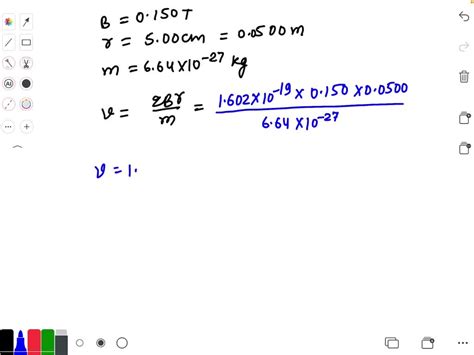 B = 0.150T
r = 5.00cm = 0.0500m
m = 6.64×10⁻²⁷ kg
v = qBr/m = 1.602×10⁻¹⁹ × 0.150 × 0.0500 / 6.64×10⁻²⁷
v = 1.